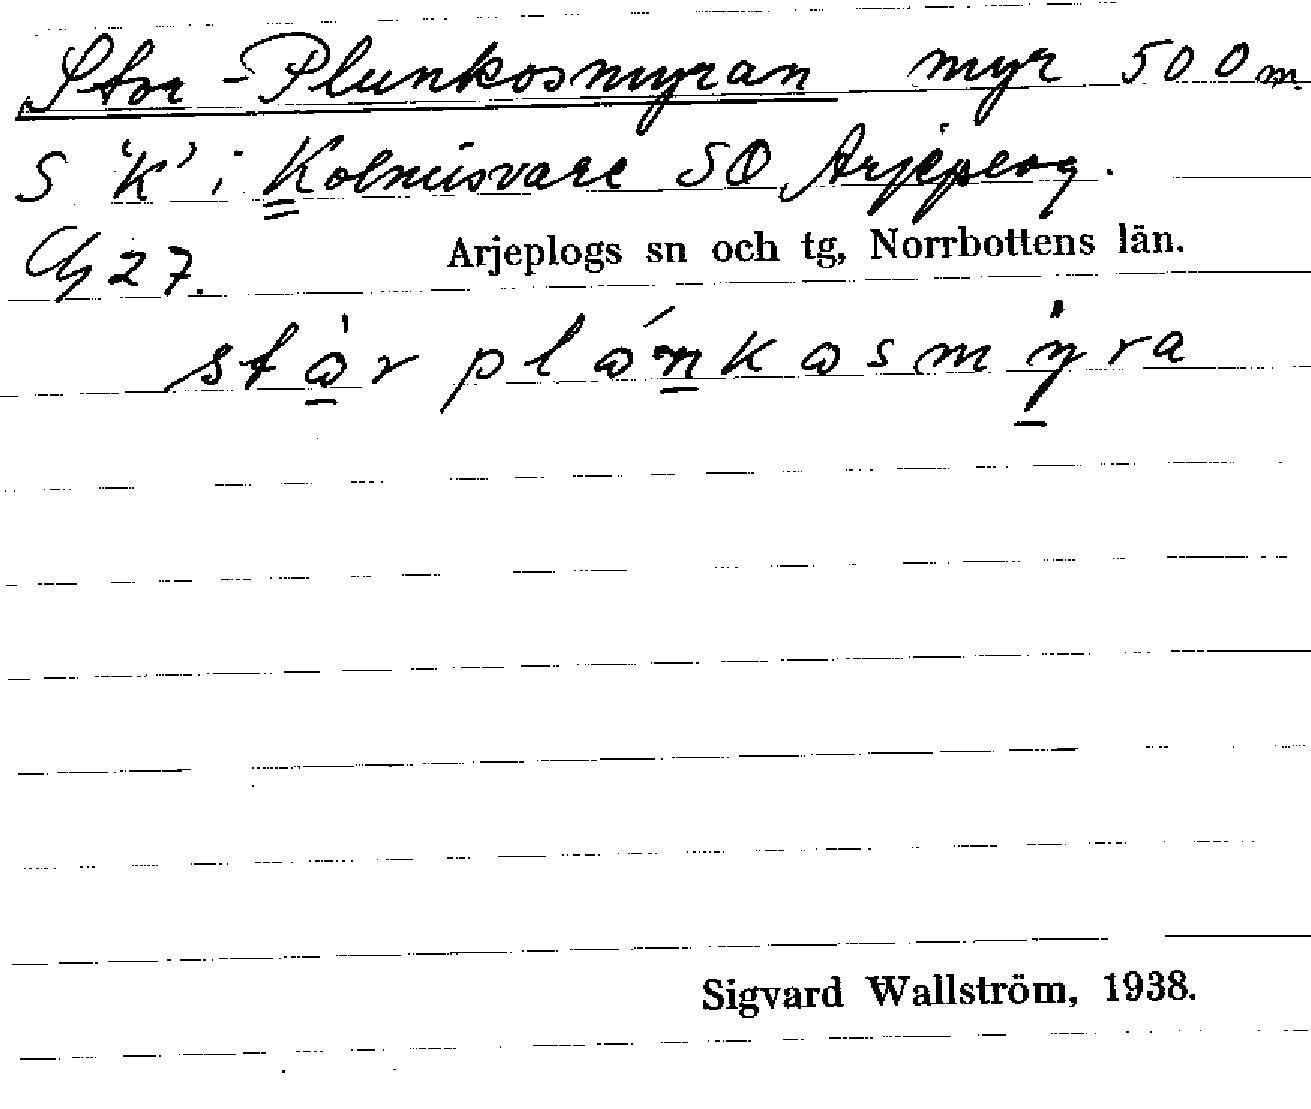 Stor-Plunkosmyran myr 500 m
S 'K' i Kolmisvare SO Arjeplog.
27.
Arjeplogs sn och tg, Norrbottens län.
Sigvard Wallström, 1938.